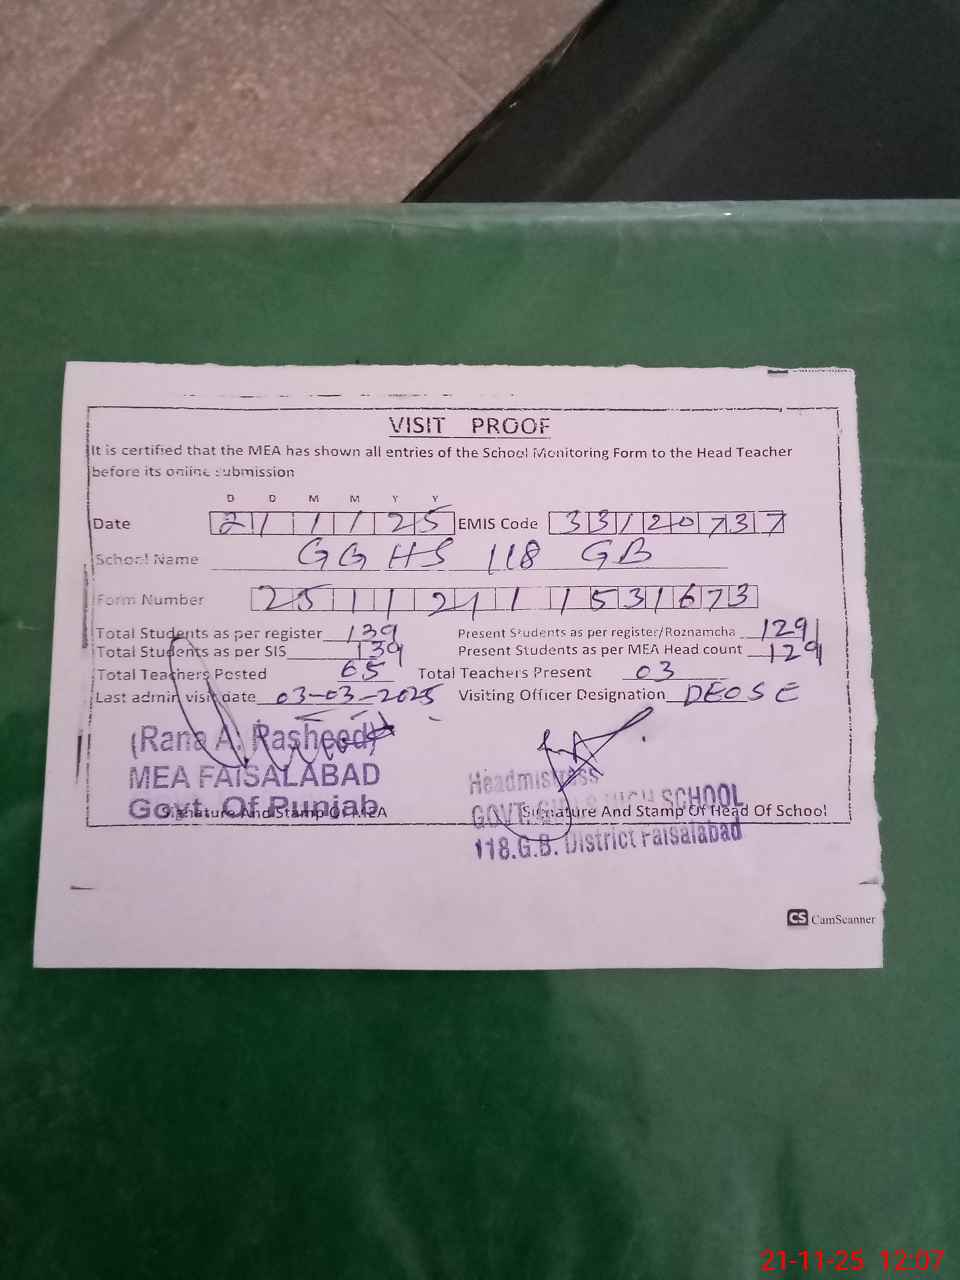 VISIT PROOF
It is certified that the MEA has shown all entries of the School Monitoring Form to the Head Teacher
before its online submission
D D M M Y Y
Date 21 11 25 EMIS Code 33120737
School Name GGHS 118 GB
Form Number 2511211531673
Total Students as per register 139 Present Students as per register/Roznamcha 129
Total Students as per SIS 139 Present Students as per MEA Head count 129
Total Teachers Posted 05 Total Teachers Present 03
Last admin visit date 03-03-2025 Visiting Officer Designation DEOSE
(Rana A. Rasheed)
MEA FAISALABAD
Govt. Of Punjab
Signature And Stamp Of MEA
Headmistress
GOVT. GIRLS HIGH SCHOOL
Signature And Stamp Of Head Of School
118.G.B. District Faisalabad
CS CamScanner
21-11-25 12:07